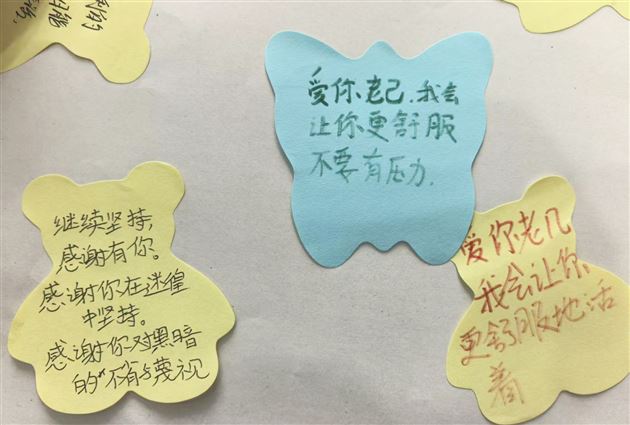 爱你老己.我会
让你更舒服
不要有压力.
继续坚持,
感谢有你。
感谢你在迷徨
中坚持。
感谢你对黑暗
的“不与蔑视
爱你老几
我会让你
更舒服地活
着